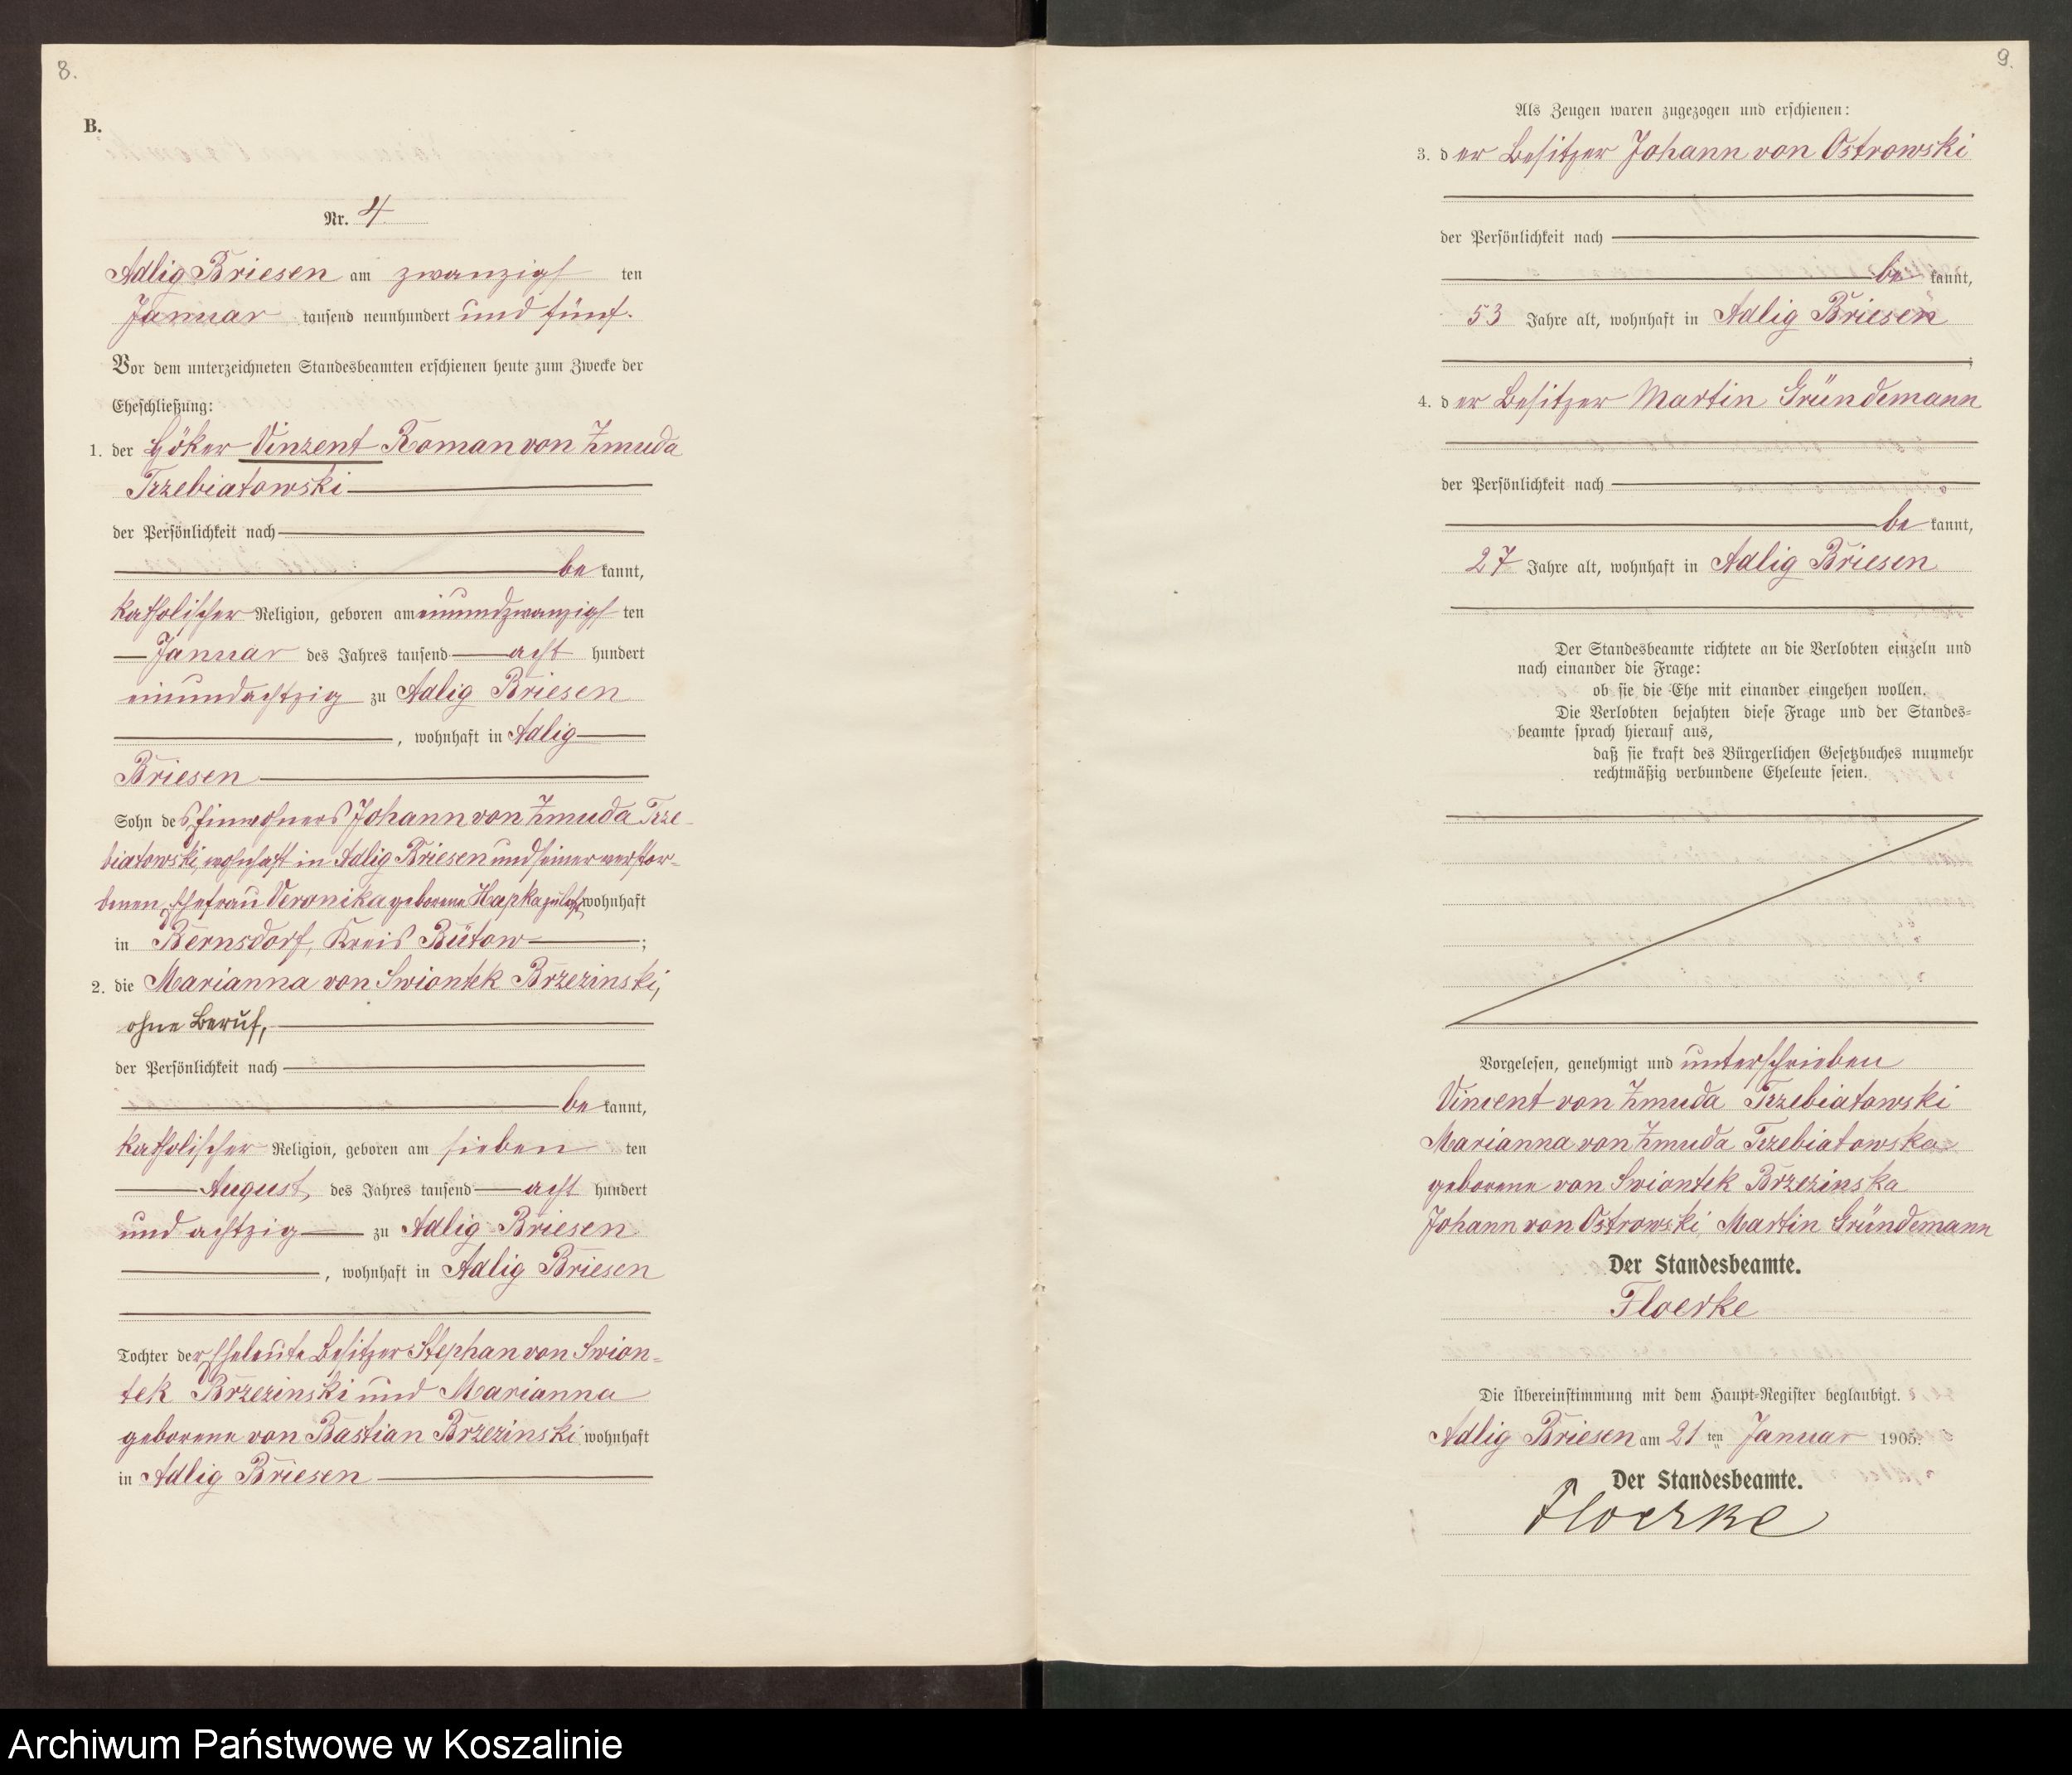 8.
B.
Nr. 4.
Adlig Briesen am zwanzigsten
Januar tausend neunhundert und fünf.
Vor dem unterzeichneten Standesbeamten erschienen heute zum Zwecke der
Eheschließung:
1. der Höker Vinzent Roman von Zmuda
Trzebiatowski
der Persönlichkeit nach
bekannt,
katholischer Religion, geboren am einundzwanzigsten
Januar des Jahres tausend acht hundert
einundachtzig zu Adlig Briesen
, wohnhaft in Adlig
Briesen
Sohn des Einwohners Johann von Zmuda Trze-
biatowski, wohnhaft in Adlig Briesen und seiner verstor-
benen Ehefrau Veronika geborene Hapka zuletzt wohnhaft
in Bernsdorf, Kreis Bütow ;
2. die Marianna von Swiontek Brzezinski,
ohne Beruf,
der Persönlichkeit nach
bekannt,
katholischer Religion, geboren am siebenten
August des Jahres tausend acht hundert
und achtzig zu Adlig Briesen
, wohnhaft in Adlig Briesen
Tochter der Eheleute Besitzer Stephan von Swion-
tek Brzezinski und Marianna
geborene von Bastian Brzezinski wohnhaft
in Adlig Briesen
9.
Als Zeugen waren zugezogen und erschienen:
3. der Besitzer Johann von Ostrowski
der Persönlichkeit nach
bekannt,
53 Jahre alt, wohnhaft in Adlig Briesen
;
4. der Besitzer Martin Gründemann
der Persönlichkeit nach
bekannt,
27 Jahre alt, wohnhaft in Adlig Briesen
Der Standesbeamte richtete an die Verlobten einzeln und
nach einander die Frage:
ob sie die Ehe mit einander eingehen wollen.
Die Verlobten bejahten diese Frage und der Standes-
beamte sprach hierauf aus,
daß sie kraft des Bürgerlichen Gesetzbuches nunmehr
rechtmäßig verbundene Eheleute seien.
Vorgelesen, genehmigt und unterschrieben
Vincent von Zmuda Trzebiatowski
Marianna von Zmuda Trzebiatowska
geborene von Swiontek Brzezinska
Johann von Ostrowski, Martin Gründemann
Der Standesbeamte.
Floerke
Die Übereinstimmung mit dem Haupt-Register beglaubigt.
Adlig Briesen am 21 ten Januar 1905.
Der Standesbeamte.
Floerke
Archiwum Państwowe w Koszalinie